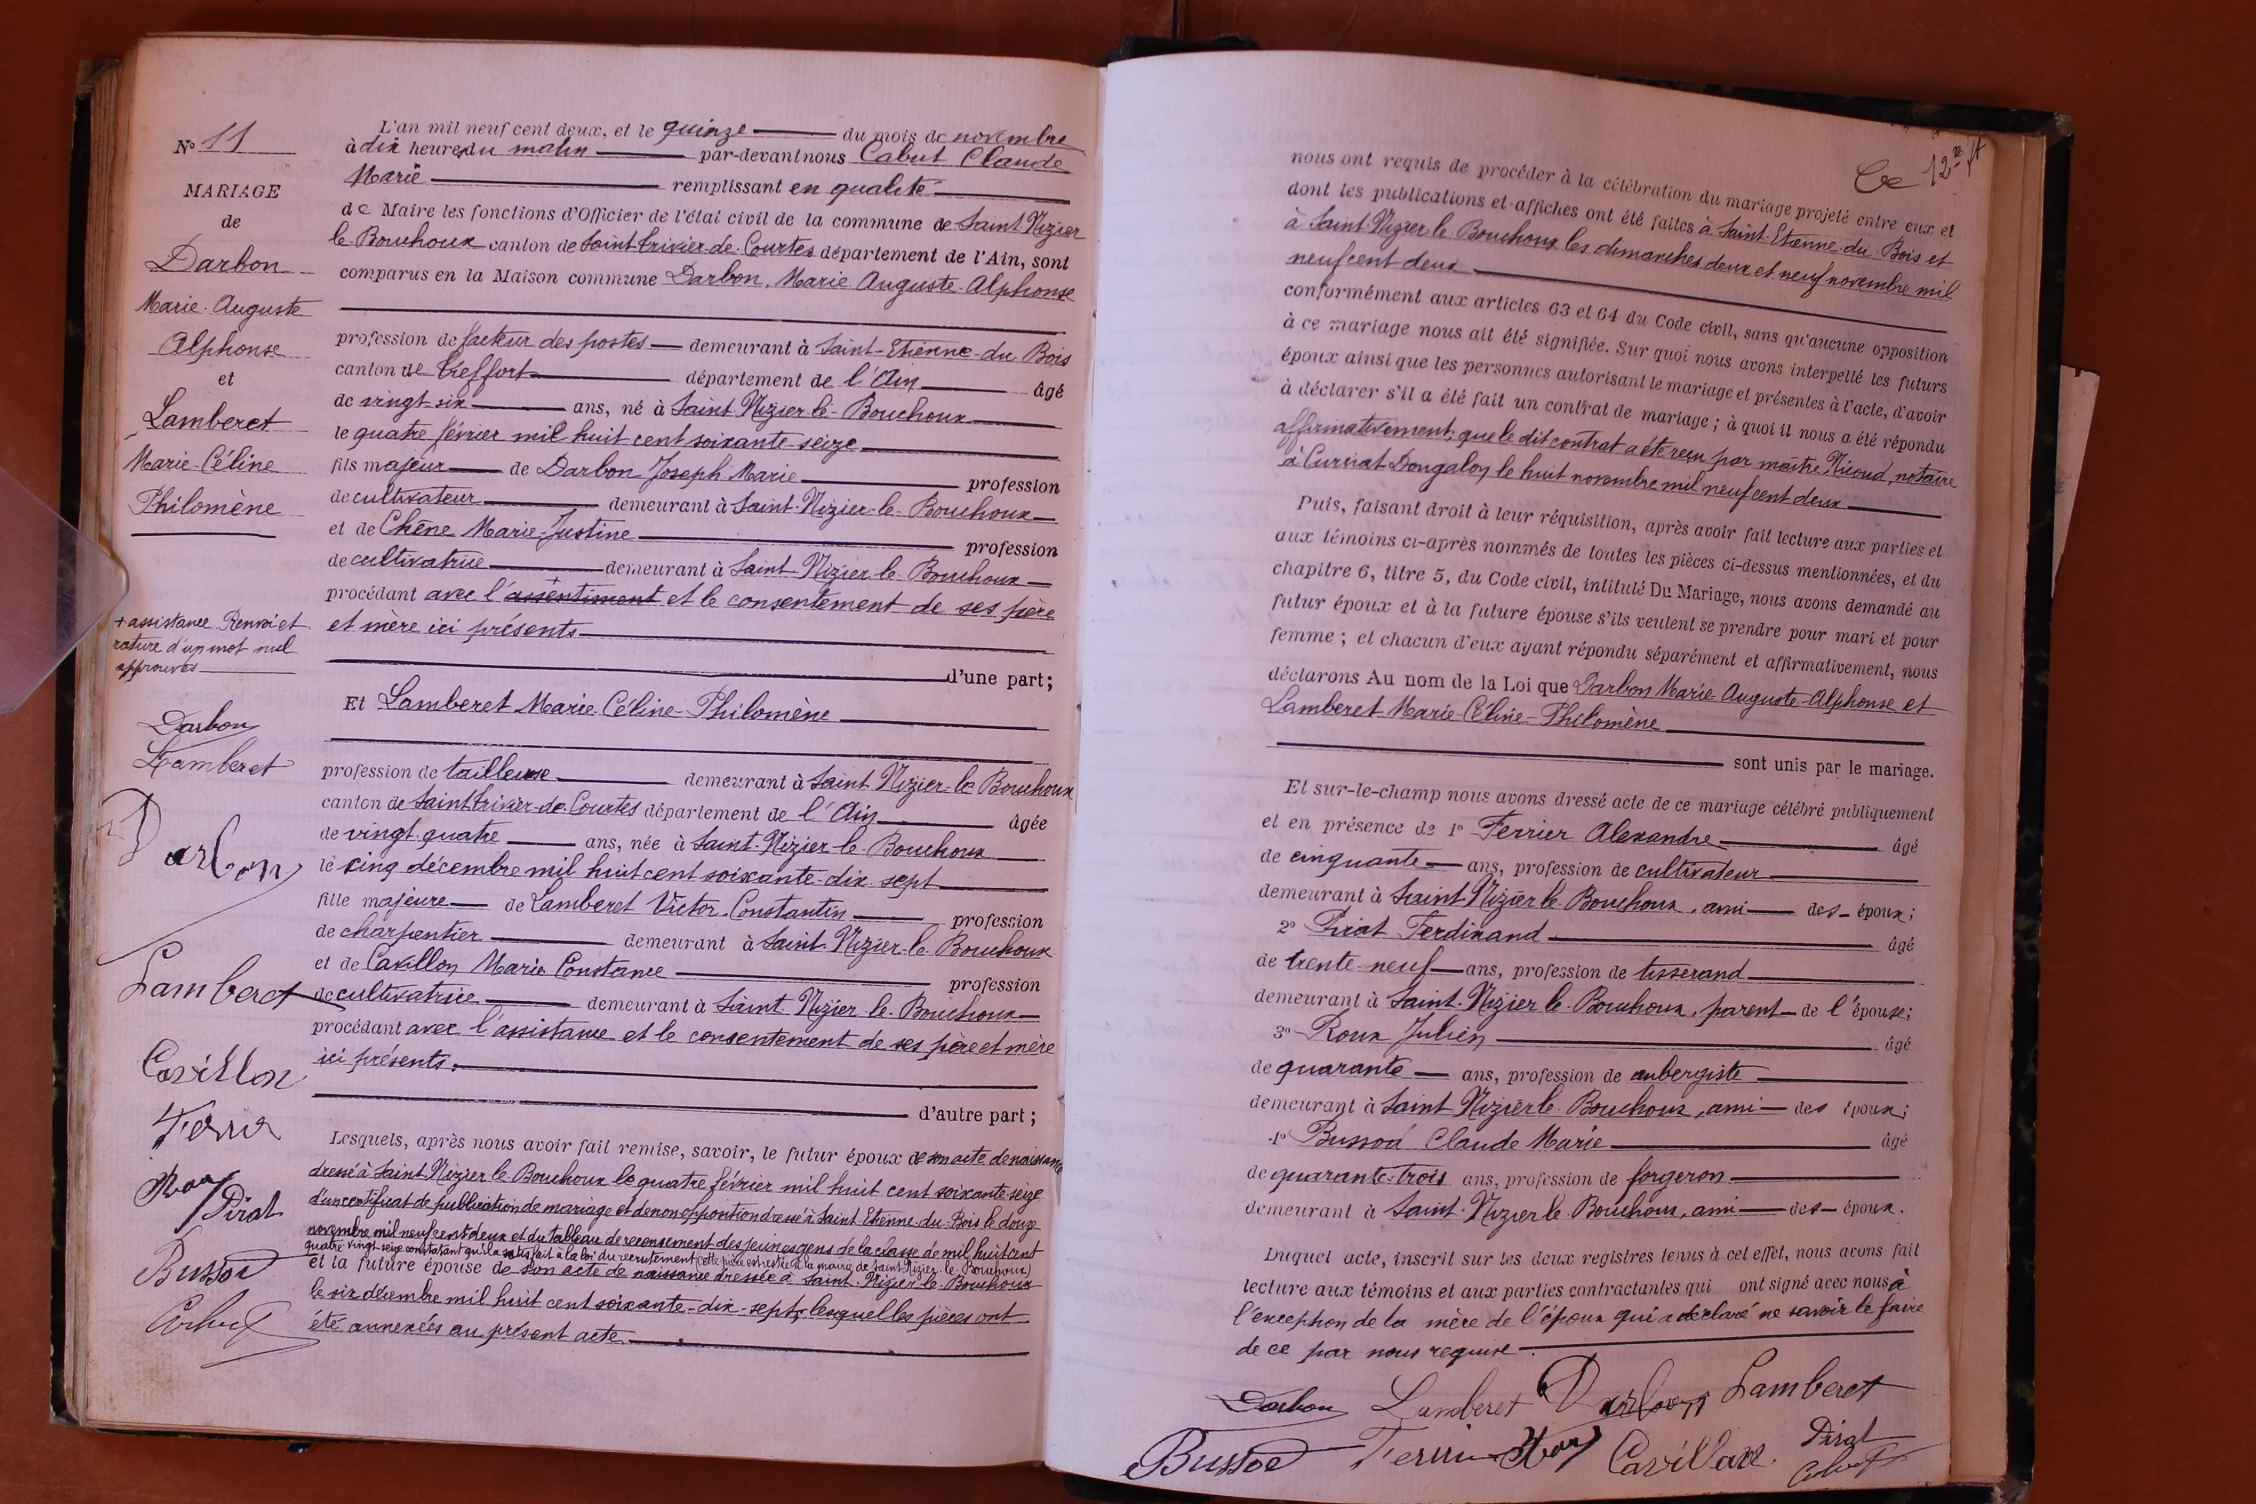 N° 11
MARIAGE
de
Darbon
Marie-Auguste
Alphonse
et
Lamberet
Marie-Céline
Philomène
+ assistance Renvoi et
rature d'un mot nul
approuvés
Darbon
Lamberet
Darbon
Lamberet
Cavillon
Roux
Pirat
L'an mil neuf cent deux, et le quinze du mois de novembre
à dix heures du matin par-devant nous Cabut Claude
Marie remplissant en qualité
de Maire les fonctions d'Officier de l'état civil de la commune de Saint Nizier
le-Bouchoux canton de Saint Trivier-de-Courtes département de l'Ain, sont
comparus en la Maison commune Darbon, Marie Auguste-Alphonse
profession de facteur des postes demeurant à Saint-Etienne-du Bois
canton de Treffort département de l'Ain âgé
de vingt-six ans, né à Saint Nizier-le-Bouchoux
le quatre février mil huit cent soixante-seize
fils majeur de Darbon Joseph-Marie profession
de cultivateur demeurant à Saint-Nizier-le-Bouchoux
et de Chêne Marie-Justine profession
de cultivatrice demeurant à Saint-Nizier-le-Bouchoux
procédant avec l'assentiment + et le consentement de ses père
et mère ici présents
d'une part;
Et Lamberet Marie-Céline-Philomène
profession de tailleuse demeurant à Saint Nizier-le-Bouchoux
canton de Saint Trivier-de-Courtes département de l'Ain âgée
de vingt-quatre ans, née à Saint-Nizier-le-Bouchoux
le cinq décembre mil huit cent soixante-dix-sept
fille majeure de Lamberet Victor-Constantin profession
de charpentier demeurant à Saint-Nizier-le-Bouchoux
et de Cavillon Marie Constance profession
de cultivatrice demeurant à Saint-Nizier-le-Bouchoux
procédant avec l'assistance et le consentement de ses père et mère
ici présents.
d'autre part;
Lesquels, après nous avoir fait remise, savoir, le futur époux de son acte de naissance
dressé à Saint Nizier le Bouchoux le quatre février mil huit cent soixante-seize
d'un certificat de publication de mariage et de non opposition dressé à Saint Etienne-du-Bois le douze
novembre mil neuf cent deux et du tableau de recensement des jeunes gens de la classe de mil huit cent
quatre vingt-seize constatant qu'il a satisfait à la loi du recrutement (cette pièce est restée à la mairie de Saint-Nizier-le-Bouchoux)
et la future épouse de son acte de naissance dressée à Saint-Nizier-le-Bouchoux
le six décembre mil huit cent soixante-dix-sept, lesquelles pièces ont
été annexées au présent acte
12
nous ont requis de procéder à la célébration du mariage projeté entre eux et
dont les publications et affiches ont été faites à Saint-Etienne-du-Bois et
à Saint-Nizier le Bouchoux les dimanches deux et neuf novembre mil
neuf cent deux
conformément aux articles 63 et 64 du Code civil, sans qu'aucune opposition
à ce mariage nous ait été signifiée. Sur quoi nous avons interpellé les futurs
époux ainsi que les personnes autorisant le mariage et présentes à l'acte, d'avoir
à déclarer s'il a été fait un contrat de mariage; à quoi il nous a été répondu
affirmativement; que le dit contrat a été reçu par maître Nicoud, notaire
à Curciat-Dongalon le huit novembre mil neuf cent deux
Puis, faisant droit à leur réquisition, après avoir fait lecture aux parties et
aux témoins ci-après nommés de toutes les pièces ci-dessus mentionnées, et du
chapitre 6, titre 5, du Code civil, intitulé Du Mariage, nous avons demandé au
futur époux et à la future épouse s'ils veulent se prendre pour mari et pour
femme; et chacun d'eux ayant répondu séparément et affirmativement, nous
déclarons Au nom de la Loi que Darbon Marie-Auguste-Alphonse et
Lamberet-Marie-Céline-Philomène
sont unis par le mariage.
Et sur-le-champ nous avons dressé acte de ce mariage célébré publiquement
et en présence de 1° Ferrier Alexandre âgé
de cinquante ans, profession de cultivateur
demeurant à Saint-Nizier le Bouchoux, ami des époux;
2° Pirat Ferdinand âgé
de trente-neuf ans, profession de tisserand
demeurant à Saint-Nizier le-Bouchoux, parent de l'épouse;
3° Roux Julien âgé
de quarante ans, profession de aubergiste
demeurant à Saint Nizier le Bouchoux, ami des époux;
4° Bussod Claude Marie âgé
de quarante-trois ans, profession de forgeron
demeurant à Saint-Nizier le Bouchoux, ami des époux.
Duquel acte, inscrit sur les deux registres tenus à cet effet, nous avons fait
lecture aux témoins et aux parties contractantes qui ont signé avec nous à
l'exception de la mère de l'époux qui a déclaré ne savoir le faire
de ce par nous requise.
Darbon Lamberet Darbon Lamberet
Cavillon Pirat